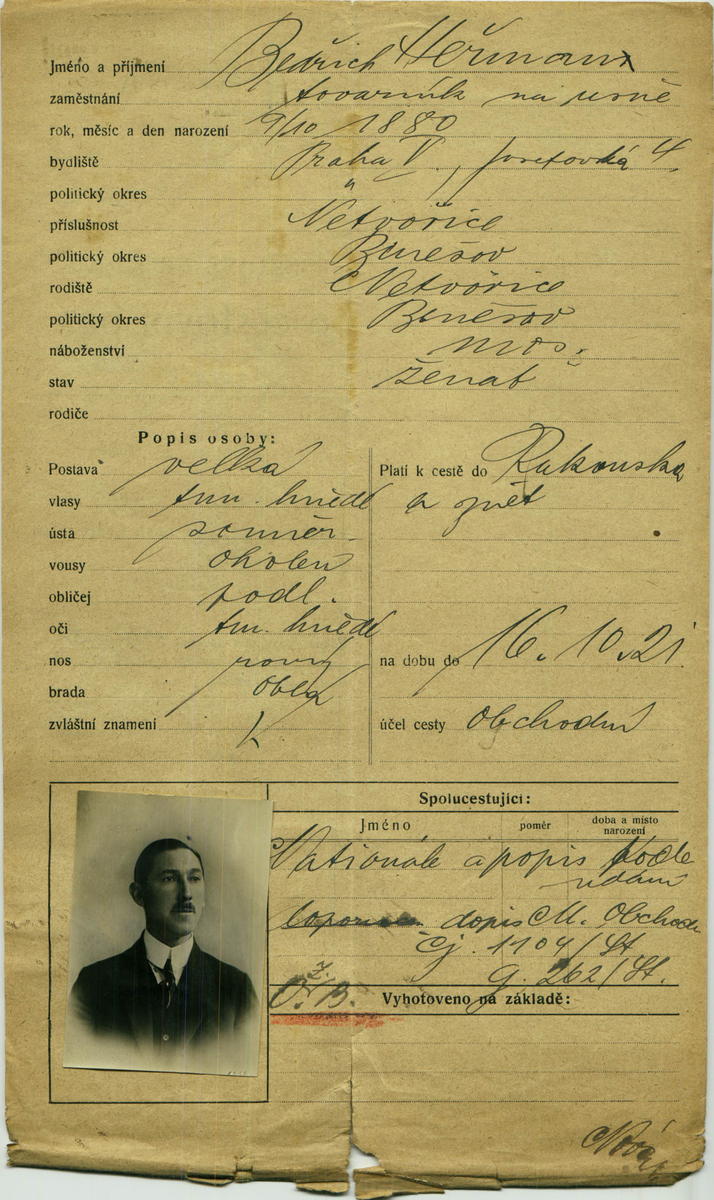 Jméno a příjmení Bedřich Heřmann
zaměstnání továrník na usně
rok, měsíc a den narození 9/10 1880
bydliště Praha V., Josefovská 4
politický okres "
příslušnost Netvořice
politický okres Benešov
rodiště Netvořice
politický okres Benešov
náboženství mos.
stav ženat
rodiče
Popis osoby:
Postava velká
vlasy tm. hnědé
ústa souměr.
vousy oholen
obličej podl.
oči tm. hnědé
nos rovný
brada oblá
zvláštní znamení
Platí k cestě do Rakouska
a zpět
na dobu do 16. 10. 21.
účel cesty obchodní
Spolucestující:
Jméno poměr doba a místo narození
Nationále a popis podle
udání
dopis M. Obchodu
čj. 1104/St
g. 262/St.
Ž.
O. B. Vyhotoveno na základě: